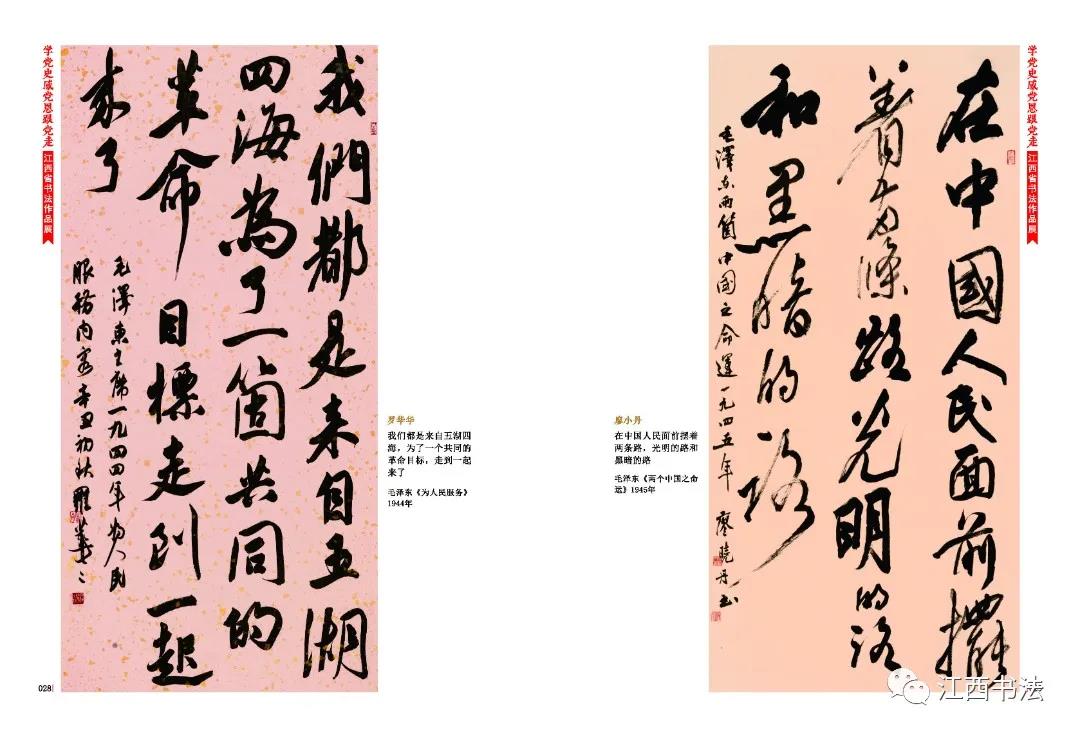 学党史感党恩跟党走
江西省书法作品展
我們都是来自五湖
四海為了一箇共同的
革命目標走到一起
来了
毛澤東主席一九四四年为人民
服務内容辛丑初秋羅華々
罗华华
我们都是来自五湖四
海，为了一个共同的
革命目标，走到一起
来了
毛泽东《为人民服务》
1944年
028
学党史感党恩跟党走
江西省书法作品展
在中國人民面前擺
着两條路光明的路
和黑暗的路
毛澤东两箇中國之命運一九四五年 廖曉丹书
廖小丹
在中国人民面前摆着
两条路，光明的路和
黑暗的路
毛泽东《两个中国之命
运》1945年
江西书法